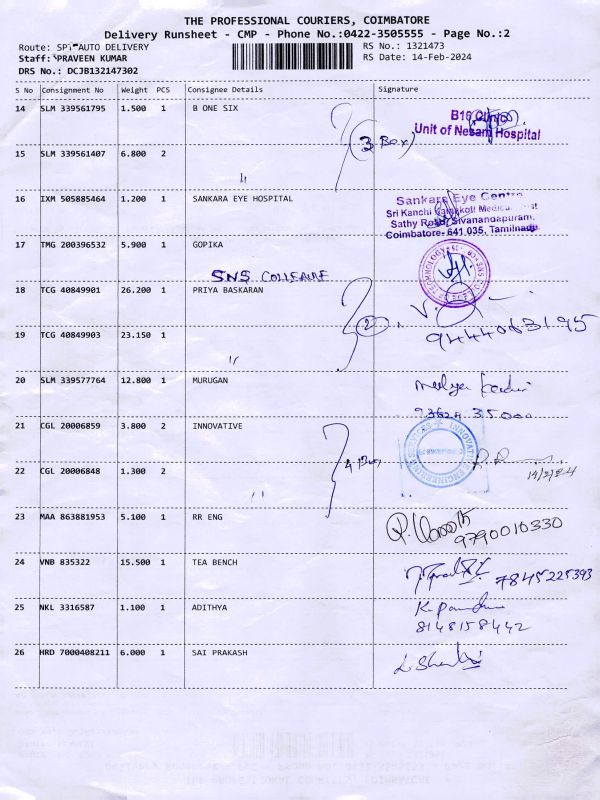 THE PROFESSIONAL COURIERS, COIMBATORE
Delivery Runsheet - CMP - Phone No.:0422-3505555 - Page No.:2
Route: AUTO DELIVERY RS No.: 1321473
Staff: PRAVEEN KUMAR RS Date: 14-Feb-2024
DRS No.: DCJB132147302
S No Consignment No Weight PCS Consignee Details Signature
14 SLM 339561795 1.500 1 B ONE SIX
B16 Clinic
Unit of Nesam Hospital
3 Box
15 SLM 339561407 6.800 2
〃
16 IXM 505885464 1.200 1 SANKARA EYE HOSPITAL
Sankara Eye Centre
Sri Kanchi Kamakoti Medical Trust
Sathy Road, Sivanandapuram,
Coimbatore- 641 035, Tamilnadu
17 TMG 200396532 5.900 1 GOPIKA
SNS COLLEAGE
18 TCG 40849901 26.200 1 PRIYA BASKARAN
2
9444063195
19 TCG 40849903 23.150 1
〃
20 SLM 339577764 12.800 1 MURUGAN
93624 35000
21 CGL 20006859 3.800 2 INNOVATIVE
INNOVATIVE ENGINEERING SERVICES
4 Box
14/2/24
22 CGL 20006848 1.300 2
〃
23 MAA 863881953 5.100 1 RR ENG
9790010330
24 VNB 835322 15.500 1 TEA BENCH
7845225393
25 NKL 3316587 1.100 1 ADITHYA
8148158442
26 HRD 7000408211 6.000 1 SAI PRAKASH